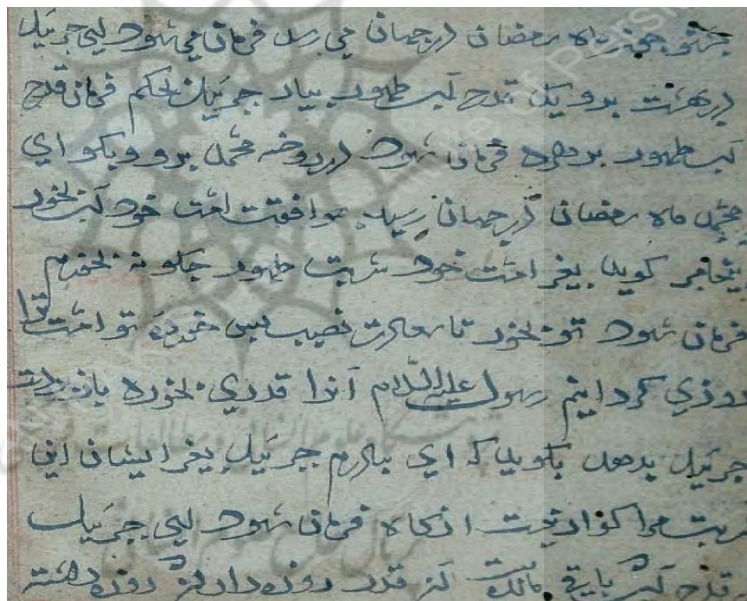 ماه رمضان در جهان می رسد فرمان می شود ای جبرئیل
در بهشت برو یک قدح آب طهور بیار جبرئیل بحکم فرمان قدح
آب طهور فرمان شود در روضه محمد برو و بکو ای
محمد ماه رمضان در جهان رسید موافقت امت خود آب بخور
پیغامبر کوید بیغر امت خود شربت طهور چکونه بخورم
فرمان شود تو بخور نصیب پس خورده تو امت ترا
روزی کردانیم رسول علیه السلام آنرا قدری بخورده باز بدست
جبرئیل بدهد بکوید که ای برادرم جبرئیل بیغر ایشان این
شربت مرا کوار نیست انکاه فرمان شود ای جبرئیل
قدح آب قدر روزه دار روزه